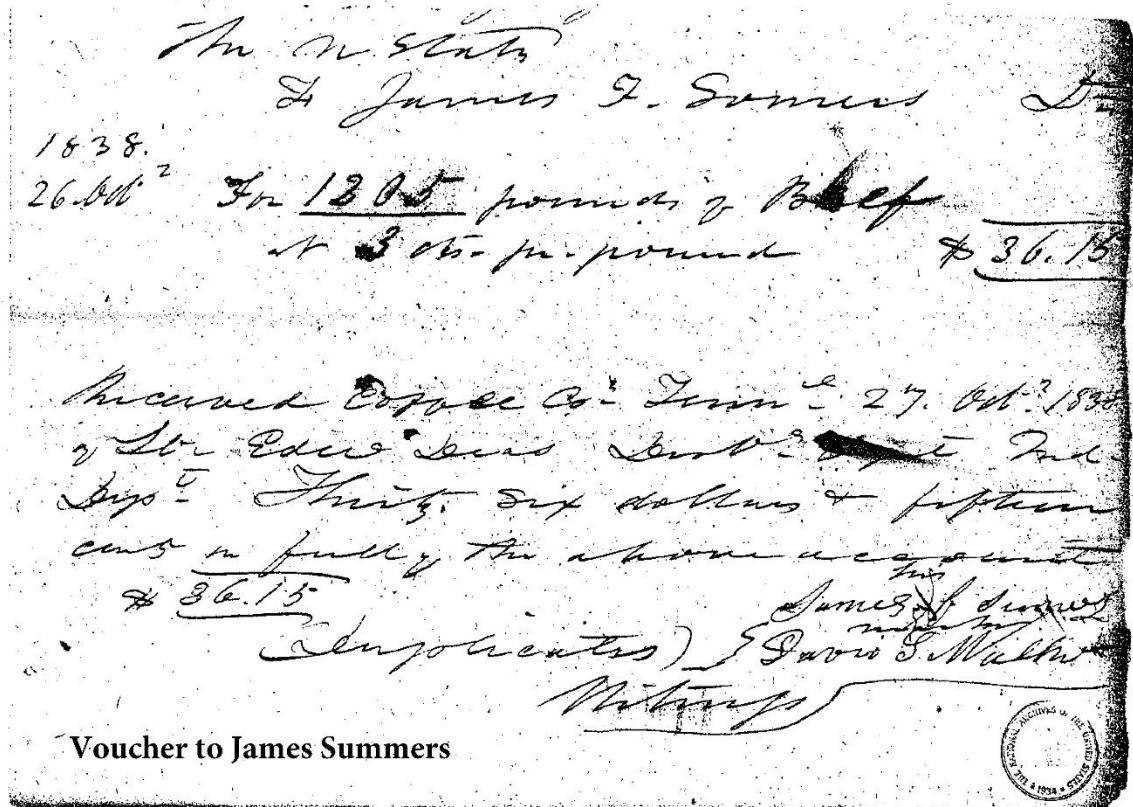 The U. States
To James F. Somers Dr
1838.
26. Octr For 1205 pounds of Beef
at 3 cts. pr. pound $36.15
Received Coosa Co. Tenne 27. Octr 1838
of Lt. Edwd Deas Disbg Agt Ind.
Dept Thirty Six dollars & fifteen
cents in full of the above account
his
$36.15 James F Sumers
mark
(Duplicates) } David S. Walker
Witness
Voucher to James Summers
THE NATIONAL ARCHIVES OF THE UNITED STATES
1934